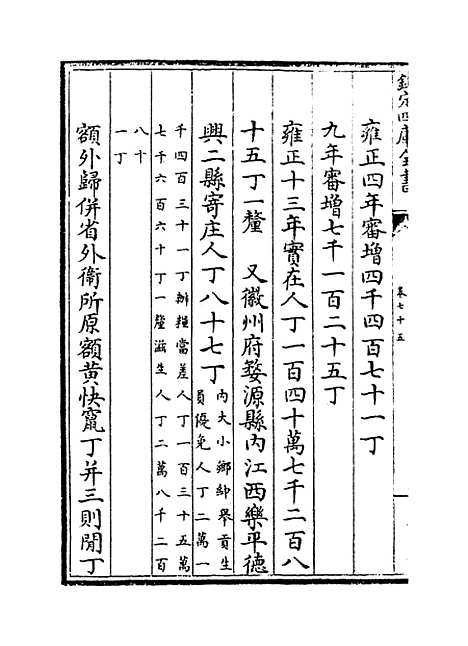 欽定四庫全書
卷七十五
雍正四年審增四千四百七十一丁
九年審增七千一百二十五丁
雍正十三年實在人丁一百四十萬七千二百八
十五丁一釐　又徽州府婺源縣內江西樂平德
興二縣寄庄人丁八十七丁
內大小鄉紳舉貢生
員優免人丁二萬一
千四百三十一丁辦糧當差人丁一百三十五萬
七千六百六十丁一釐滋生人丁二萬八千二百
八十
一丁
額外歸併省外衛所原額黃快竈丁并三則閒丁